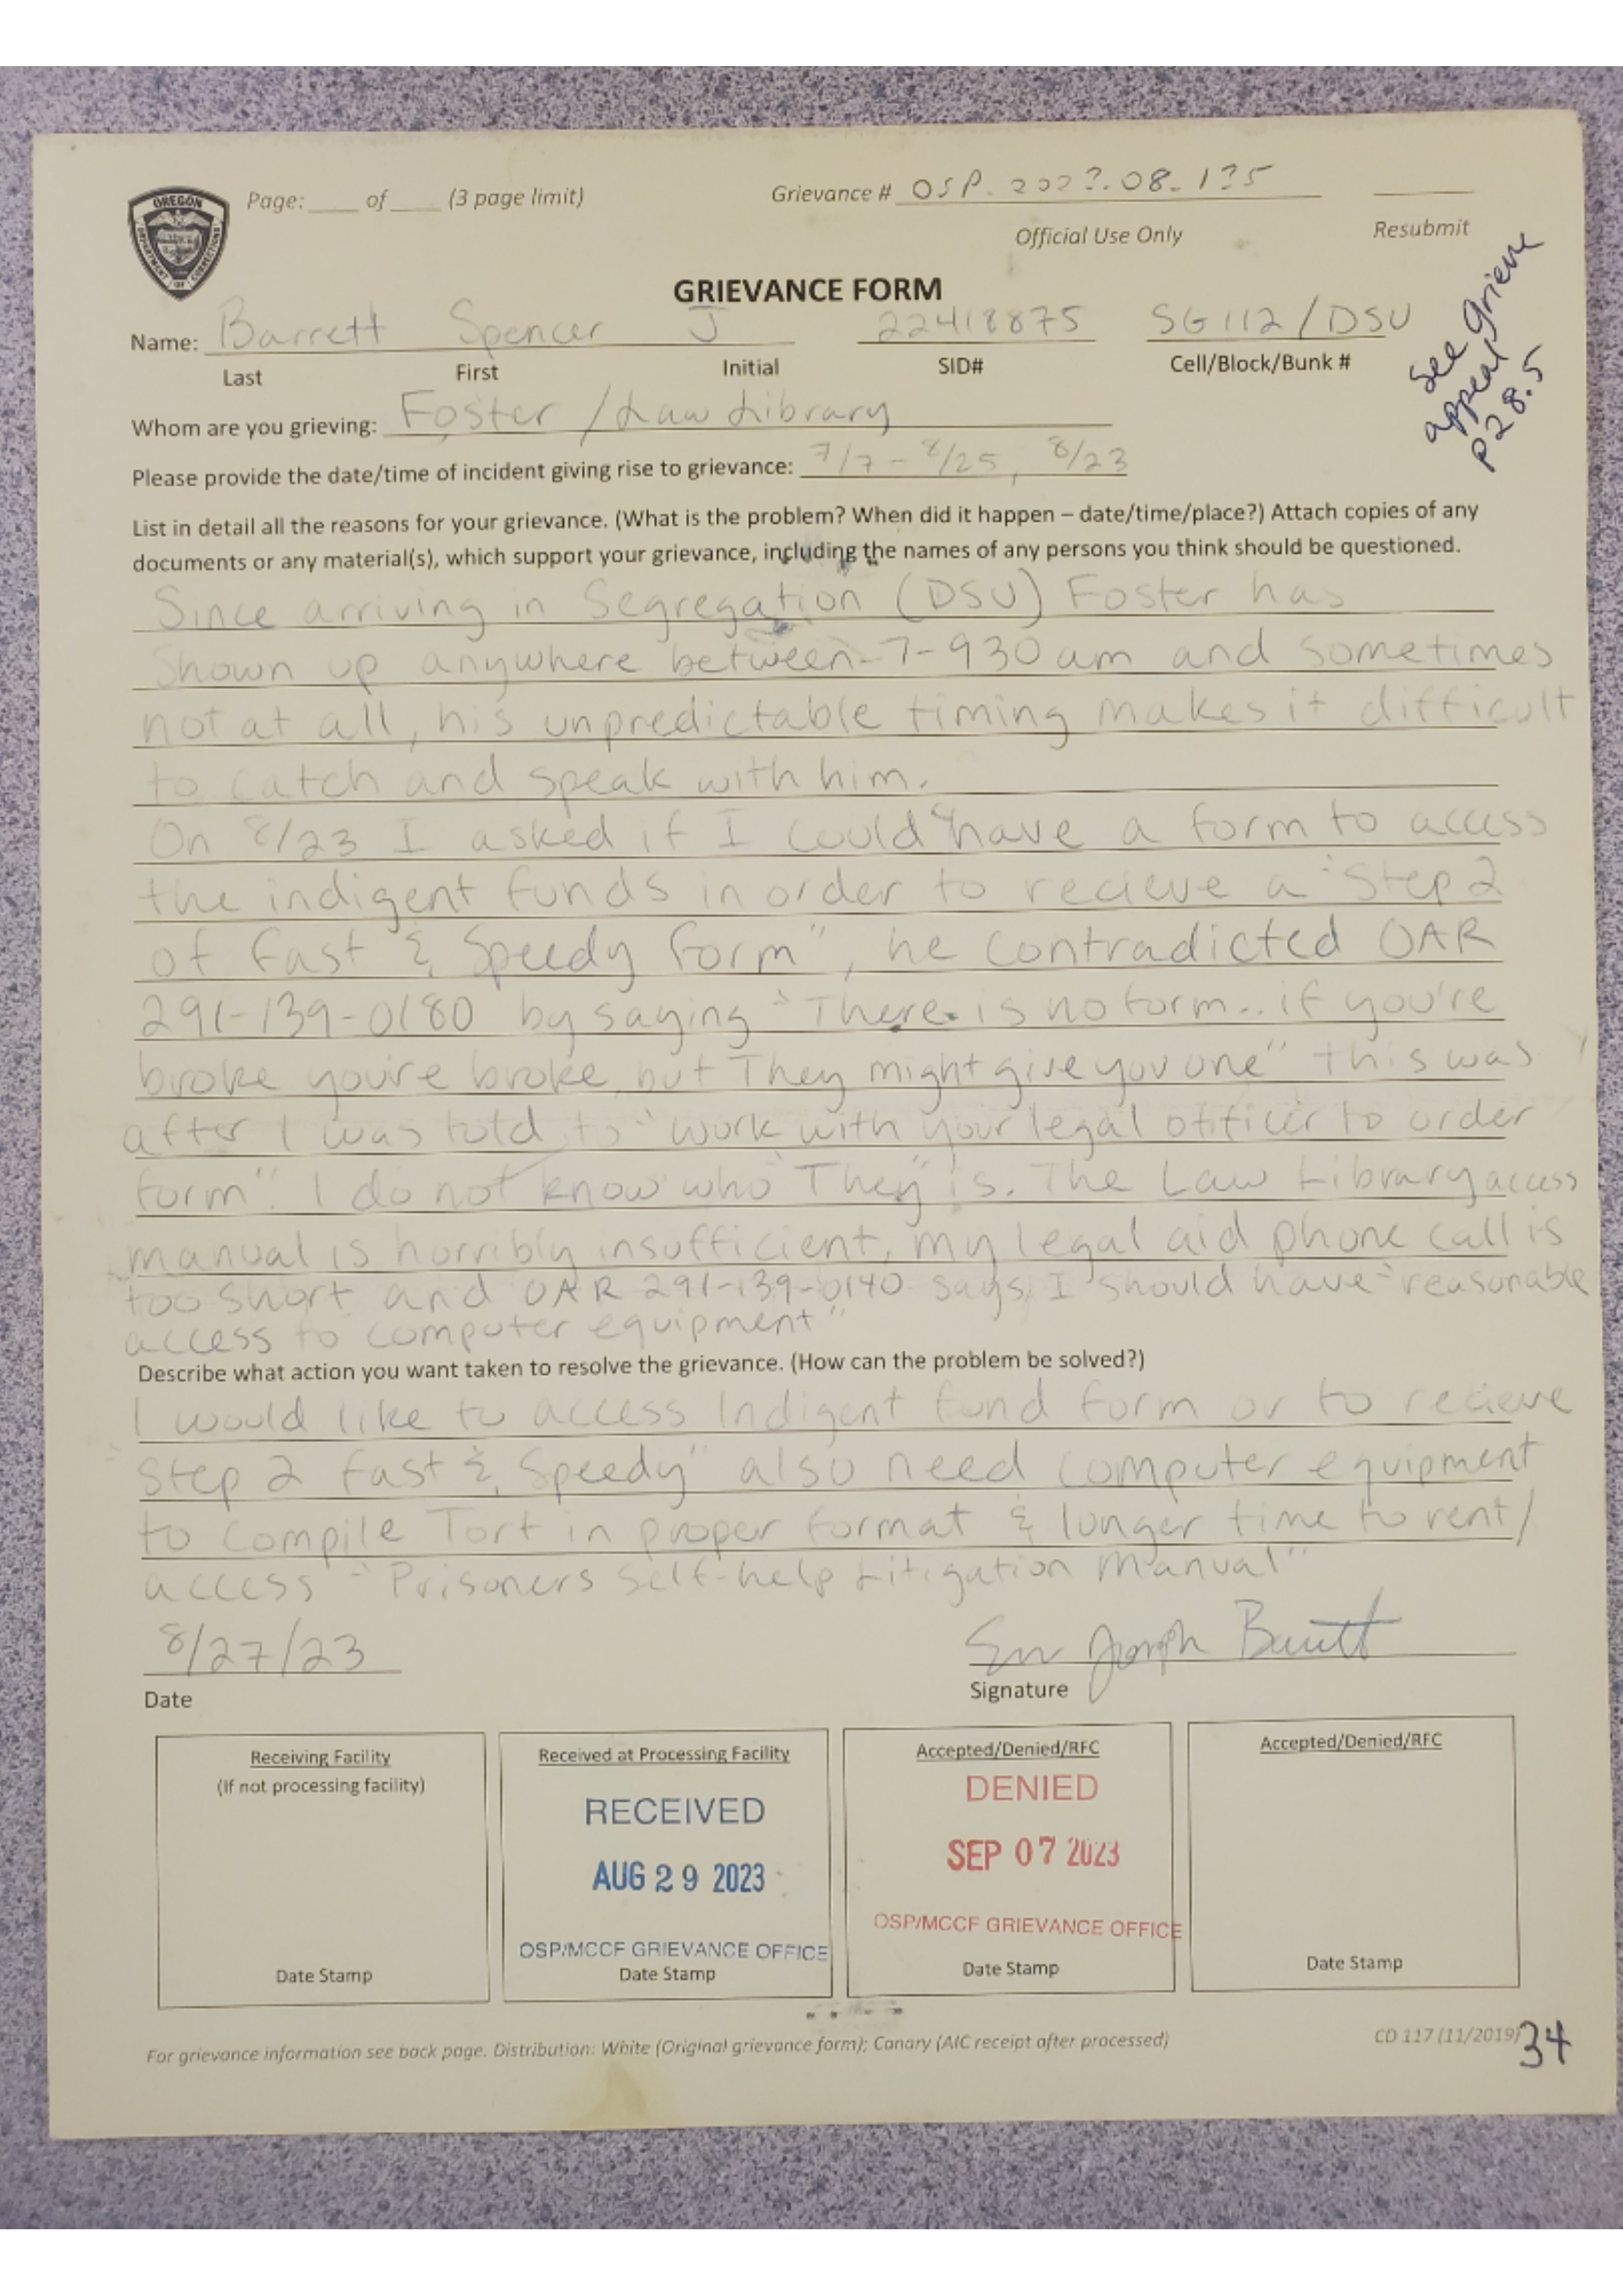 OREGON
DEPARTMENT OF CORRECTIONS
Page: ___ of ___ (3 page limit)
Grievance # OSP. 202?.08-1?5
Official Use Only
Resubmit
see grieve
appeal
P28.5
GRIEVANCE FORM
Name: Barrett Spencer J 22418875 SG112/DSU
Last First Initial SID# Cell/Block/Bunk #
Whom are you grieving: Foster / Law Library
Please provide the date/time of incident giving rise to grievance: 7/7-8/25, 8/23
List in detail all the reasons for your grievance. (What is the problem? When did it happen – date/time/place?) Attach copies of any
documents or any material(s), which support your grievance, including the names of any persons you think should be questioned.
Since arriving in Segregation (DSU) Foster has
Shown up anywhere between 7-930am and sometimes
not at all, his unpredictable timing makes it difficult
to catch and speak with him.
On 8/23 I asked if I could have a form to access
the indigent funds in order to recieve a "Step 2
of Fast & Speedy Form", he contradicted OAR
291-139-0180 by saying "There is no form.. if you're
broke you're broke, but They might give you one" this was
after I was told to "work with your legal officer to order
form". I do not know who "They" is. The Law Library access
manual is horribly insufficient, my legal aid phone call is
too short and OAR 291-139-0140 says I should have "reasonable
access to computer equipment"
Describe what action you want taken to resolve the grievance. (How can the problem be solved?)
I would like to access Indigent fund form or to recieve
"Step 2 Fast & Speedy" also need computer equipment
to compile Tort in proper format & longer time to rent/
access "Prisoners Self-help Litigation Manual"
8/27/23
Date
Signature
Receiving Facility
(If not processing facility)
Date Stamp
Received at Processing Facility
RECEIVED
AUG 29 2023
OSP/MCCF GRIEVANCE OFFICE
Date Stamp
Accepted/Denied/RFC
DENIED
SEP 07 2023
OSP/MCCF GRIEVANCE OFFICE
Date Stamp
Accepted/Denied/RFC
Date Stamp
For grievance information see back page. Distribution: White (Original grievance form); Canary (AIC receipt after processed)
CD 117 (11/2019)
34